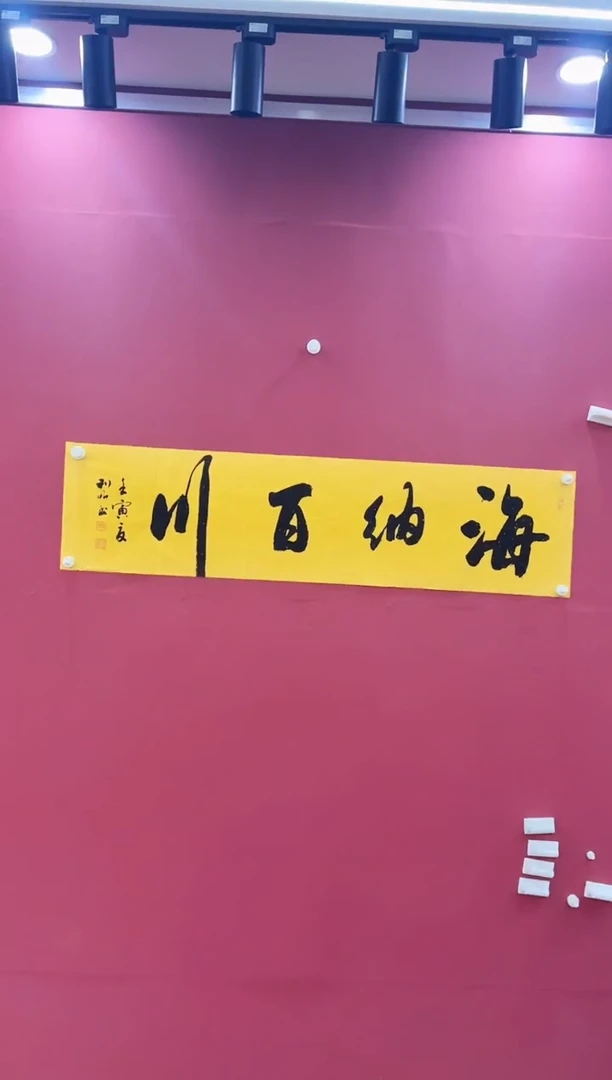 海纳百川
壬寅夏